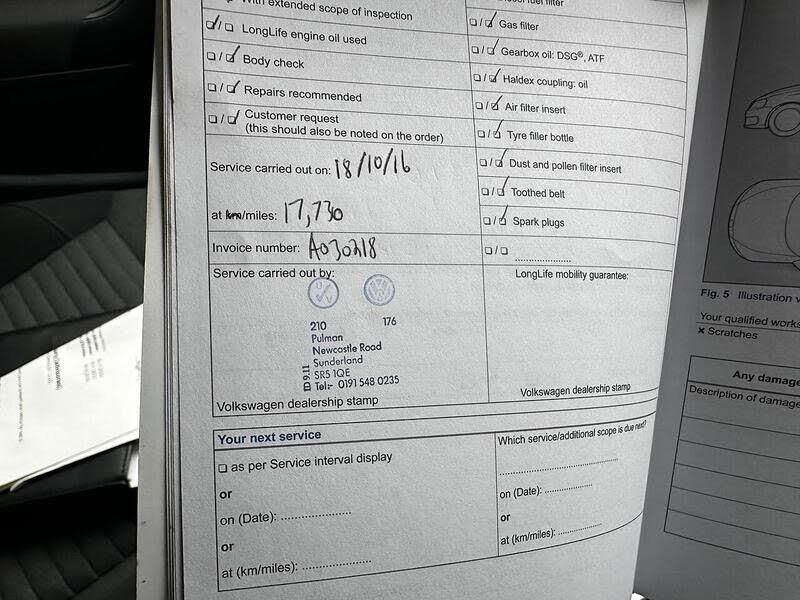 With extended scope of inspection
LongLife engine oil used
Body check
Repairs recommended
Customer request
(this should also be noted on the order)
Service carried out on: 18/10/16
at km/miles: 17,730
Invoice number: A030218
Service carried out by:
210 176
Pulman
Newcastle Road
Sunderland
SR5 1QE
Tel:- 0191 548 0235
Volkswagen dealership stamp
filter
Gas filter
Gearbox oil: DSG®, ATF
Haldex coupling: oil
Air filter insert
Tyre filler bottle
Dust and pollen filter insert
Toothed belt
Spark plugs
LongLife mobility guarantee:
Volkswagen dealership stamp
Your next service
as per Service interval display
or
on (Date): ....................
or
at (km/miles): ....................
Which service/additional scope is due next?
on (Date): ..............
or
at (km/miles): ..............
Fig. 5 Illustration
Your qualified works
× Scratches
Any damage
Description of damage